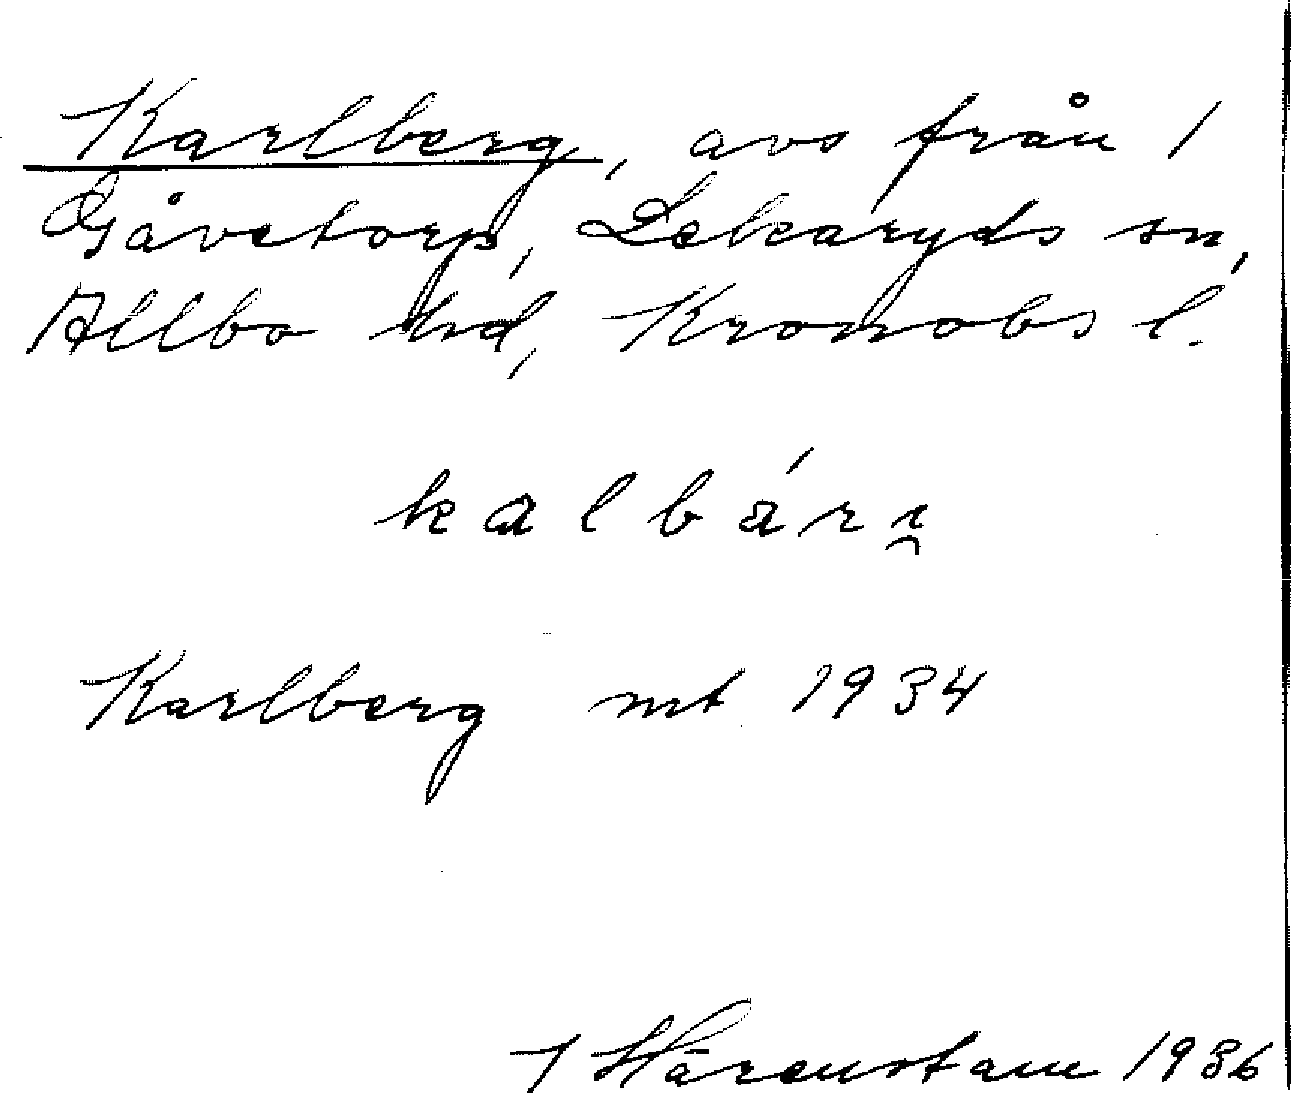 Karlberg, avs från 1
Gåvetorp, Lekaryds sn,
Allbo hd, Kronobs l.
kalbárı̯
Karlberg mt 1934
J Härenstam 1936